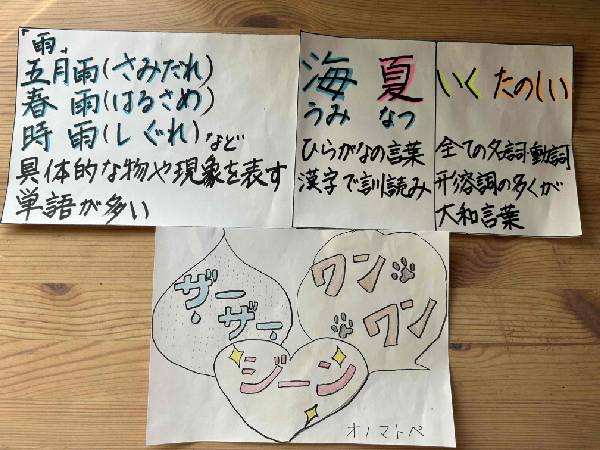 「雨」
五月雨(さみだれ)
春 雨(はるさめ)
時 雨(しぐれ)など
具体的な物や現象を表す
単語が多い
海 夏
うみ なつ
ひらがなの言葉
漢字で訓読み
いく たのしい
全ての名詞・動詞
形容詞の多くが
大和言葉
ザー
ザー
ワン
ワン
ジーン
オノマトペ